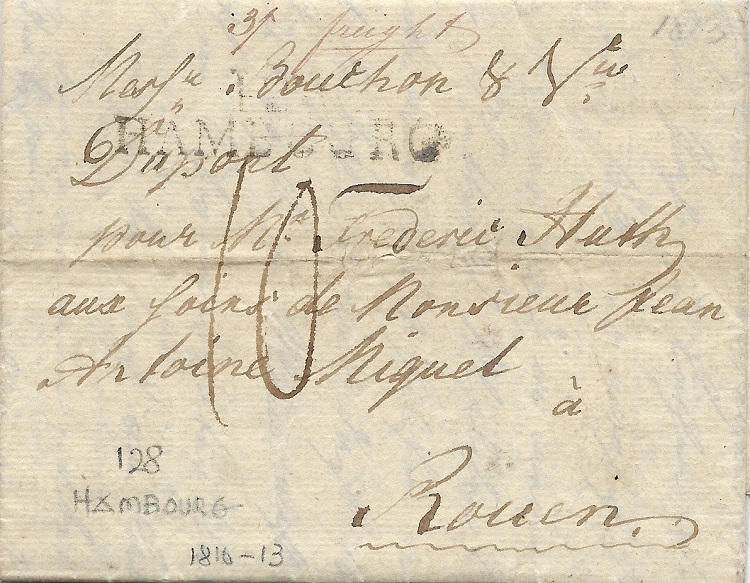 3/ freight 1813
Messrs. Bouthon & Vve
HAMBOURG
Dupont
10
pour Mr. Frederic Huth
aux soins de Monsieur Jean
Antoine Miquel
à
Rouen
128
HAMBOURG
1810-13